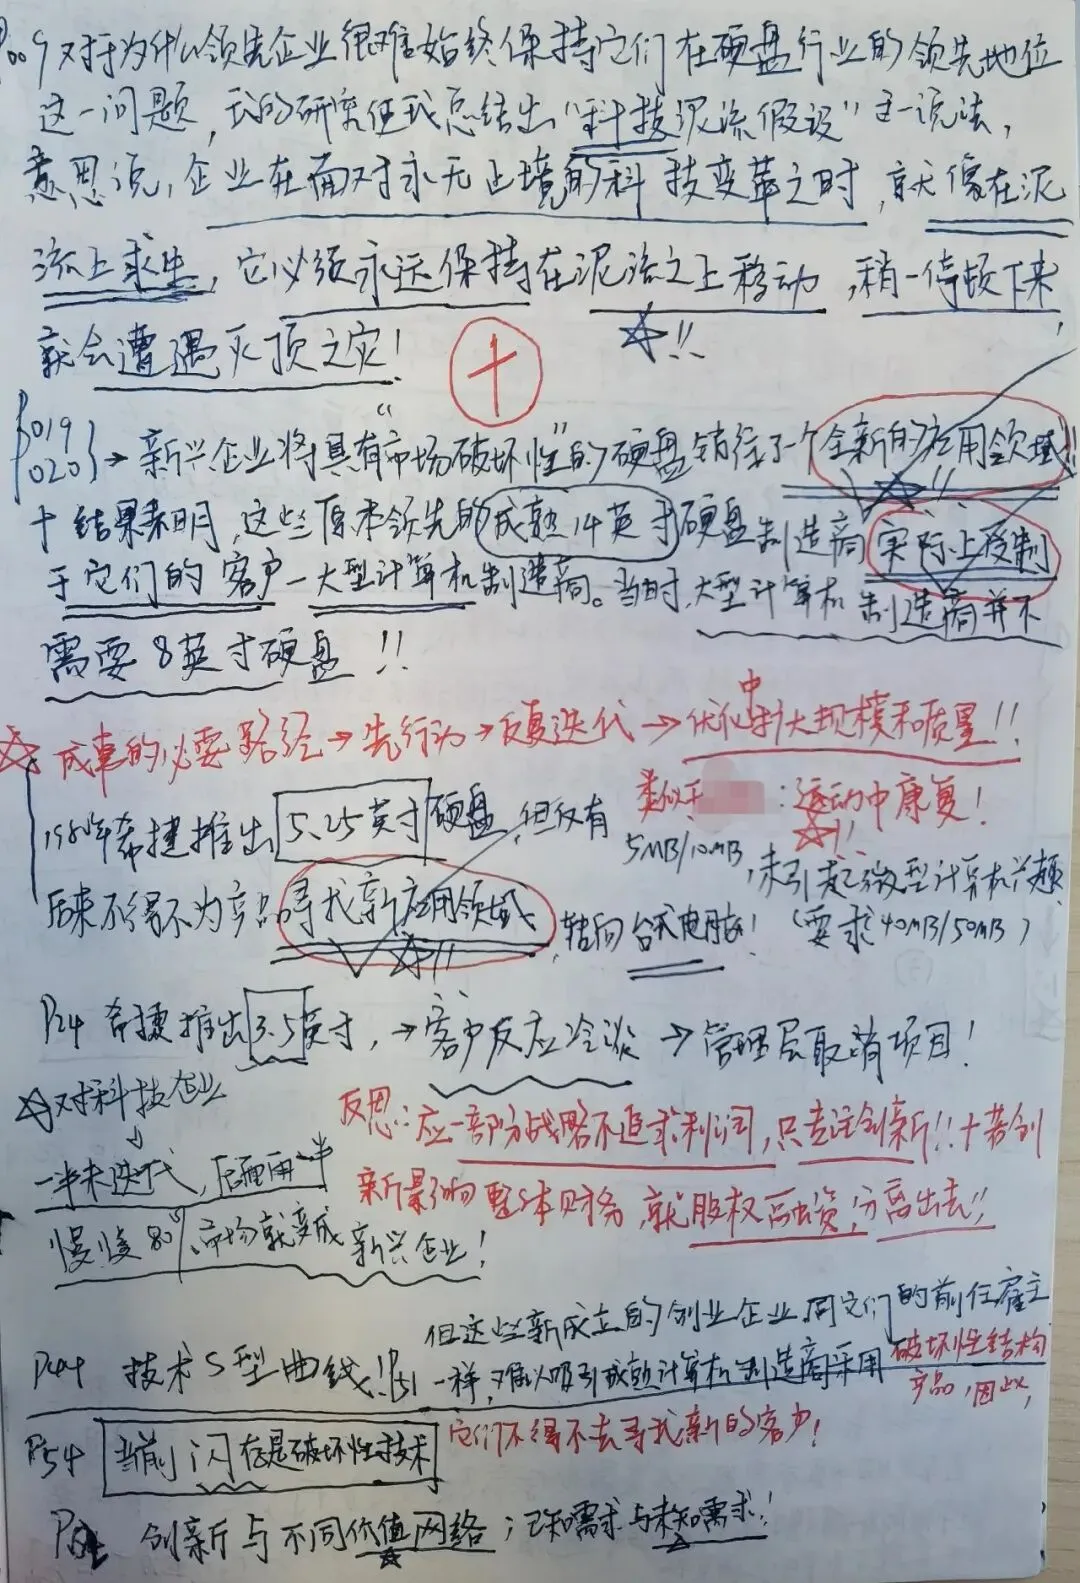 P009 对于为什么领先企业很难始终保持它们在硬盘行业的领先地位
这一问题，我的研究使我总结出“科技泥流假设”这一说法，
意思说，企业在面对永无止境的科技变革之时，就像在泥
流上求生，它必须永远保持在泥流之上移动，稍一停顿下来
就会遭遇灭顶之灾！
+
P019 020 → 新兴企业将具有“市场破坏性”的硬盘销往了一个全新的应用领域!!
+ 结果表明，这些原本领先的成熟14英寸硬盘制造商实际上受制
于它们的客户—大型计算机制造商。当时，大型计算机制造商并不
需要8英寸硬盘!!
☆ 成事的必要路径→先行动→反复迭代→优化中扩大规模和质量!!
类似于 ：运动中康复！
1980年希捷推出5.25英寸硬盘，但仅有
5MB/10MB，未引起微型计算机兴趣
后来不得不为产品寻找新应用领域，转向台式电脑！（要求40MB/50MB）
P24 希捷推出3.5英寸，→客户反应冷淡→管理层取消项目！
☆对科技企业
↓
一半未迭代，后面再一半
慢慢80%市场就变成新兴企业！
反思：应一部分战略不追求利润，只专注创新!! + 若创
新影响整体财务，就股权融资，分离出去!!
技术S型曲线！P51 但这些新成立的创业企业同它们的前任雇主
一样，难以吸引成熟计算机制造商采用破坏性结构
产品，因此，
它们不得不去寻找新的客户！
P54 当前闪存是破坏性技术
创新与不同价值网络；已知需求与未知需求！